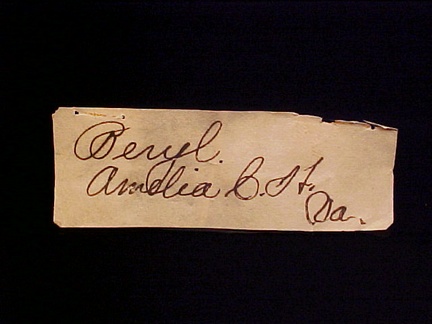 Beryl.
Amelia C. H.
Va.